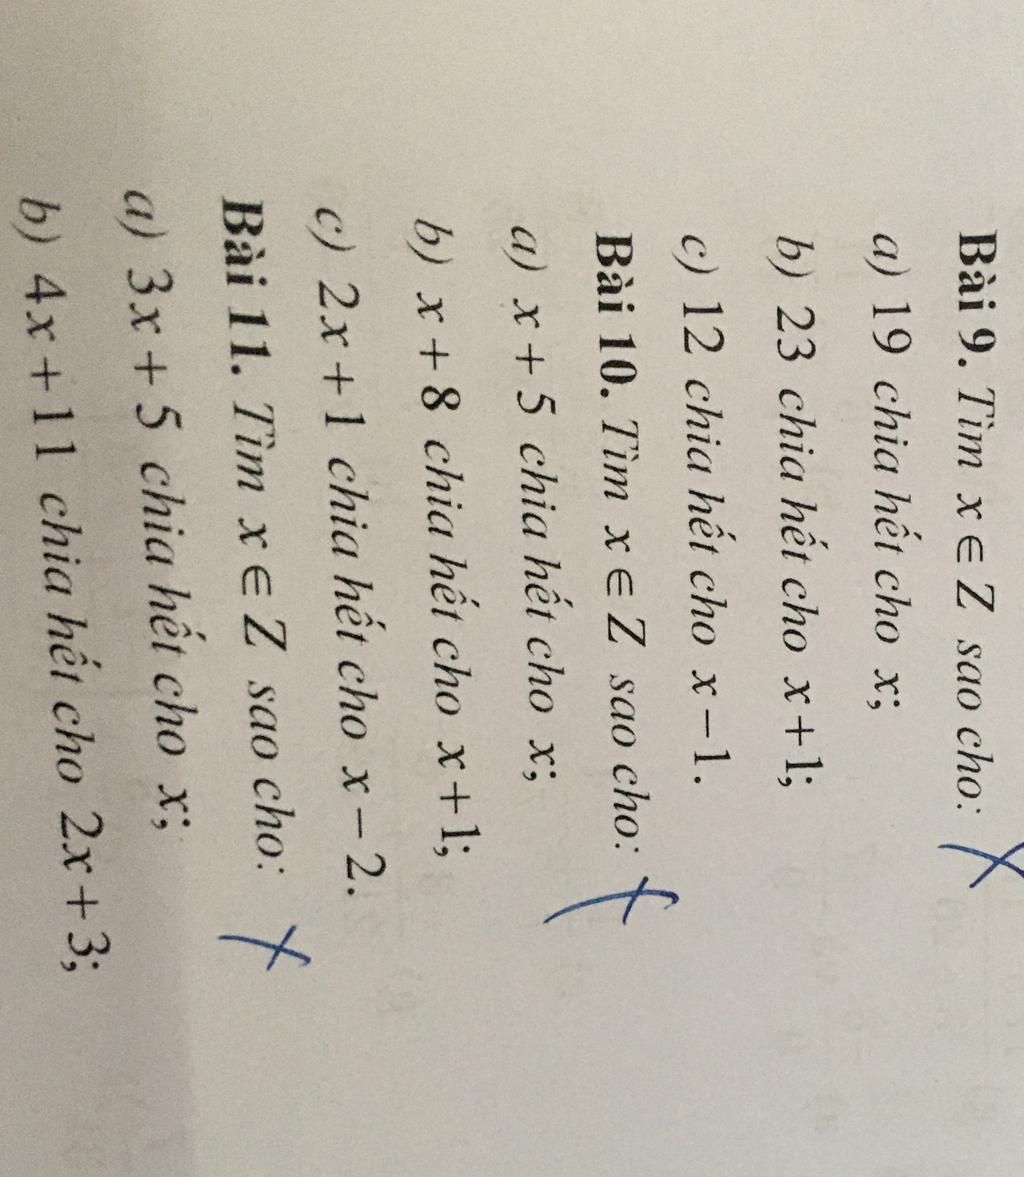 Bài 9. Tìm x ∈ Z sao cho:
a) 19 chia hết cho x;
b) 23 chia hết cho x+1;
c) 12 chia hết cho x−1.
Bài 10. Tìm x ∈ Z sao cho:
a) x+5 chia hết cho x;
b) x+8 chia hết cho x+1;
c) 2x+1 chia hết cho x−2.
Bài 11. Tìm x ∈ Z sao cho:
a) 3x+5 chia hết cho x;
b) 4x+11 chia hết cho 2x+3;